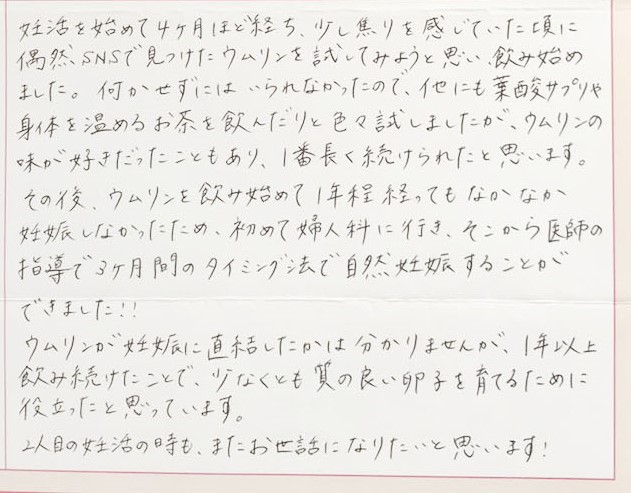 妊活を始めて4ヶ月ほど経ち、少し焦りを感じていた頃に
偶然、SNSで見つけたウムリンを試してみようと思い、飲み始め
ました。何かせずにはいられなかったので、他にも葉酸サプリや
身体を温めるお茶を飲んだりと色々試しましたが、ウムリンの
味が好きだったこともあり、1番長く続けられたと思います。
その後、ウムリンを飲み始めて1年程経ってもなかなか
妊娠しなかったため、初めて婦人科に行き、そこから医師の
指導で3ヶ月間のタイミング法で自然妊娠することが
できました!!
ウムリンが妊娠に直結したかは分かりませんが、1年以上
飲み続けたことで、少なくとも質の良い卵子を育てるために
役立ったと思っています。
2人目の妊活の時も、またお世話になりたいと思います!